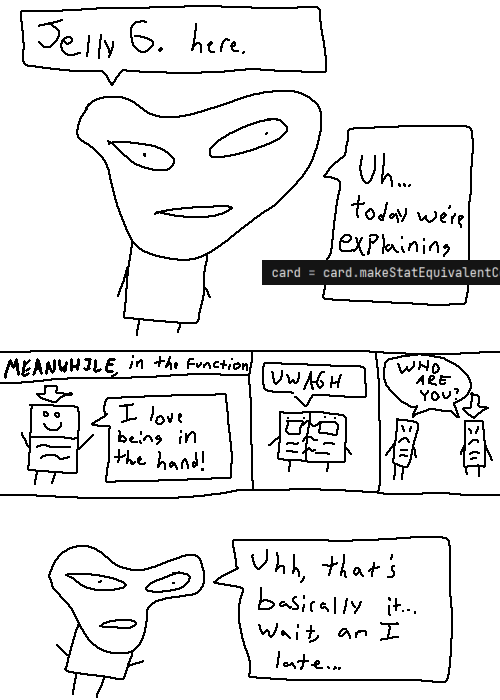 Jelly G. here.
Uh...
today we're
explaining
card = card.makeStatEquivalentC
MEANWHILE, in the function
I love
being in
the hand!
UWAGH
WHO
ARE
YOU?
Uhh, that's
basically it...
Wait, am I
late...